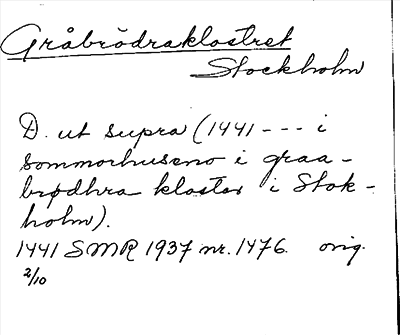 Gråbrödraklostret
Stockholm
D. ut supra (1441 --- i
sommorhuseno i graa-
brødhra kloster i Stok-
holm).
1441 SMR 1937 nr. 1476. orig.
2/10